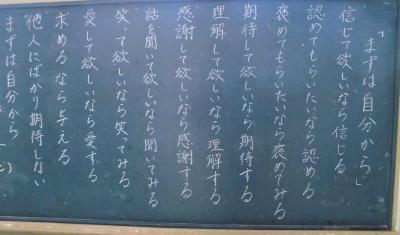 「まずは自分から」
信じて欲しいなら信じる
認めてもらいたいなら認める
褒めてもらいたいなら褒めてみる
期待して欲しいなら期待する
理解して欲しいなら理解する
感謝して欲しいなら感謝する
話を聞いて欲しいなら聞いてみる
笑って欲しいなら笑ってみる
愛して欲しいなら愛する
求めるなら与える
他人にばかり期待しない
まずは自分から